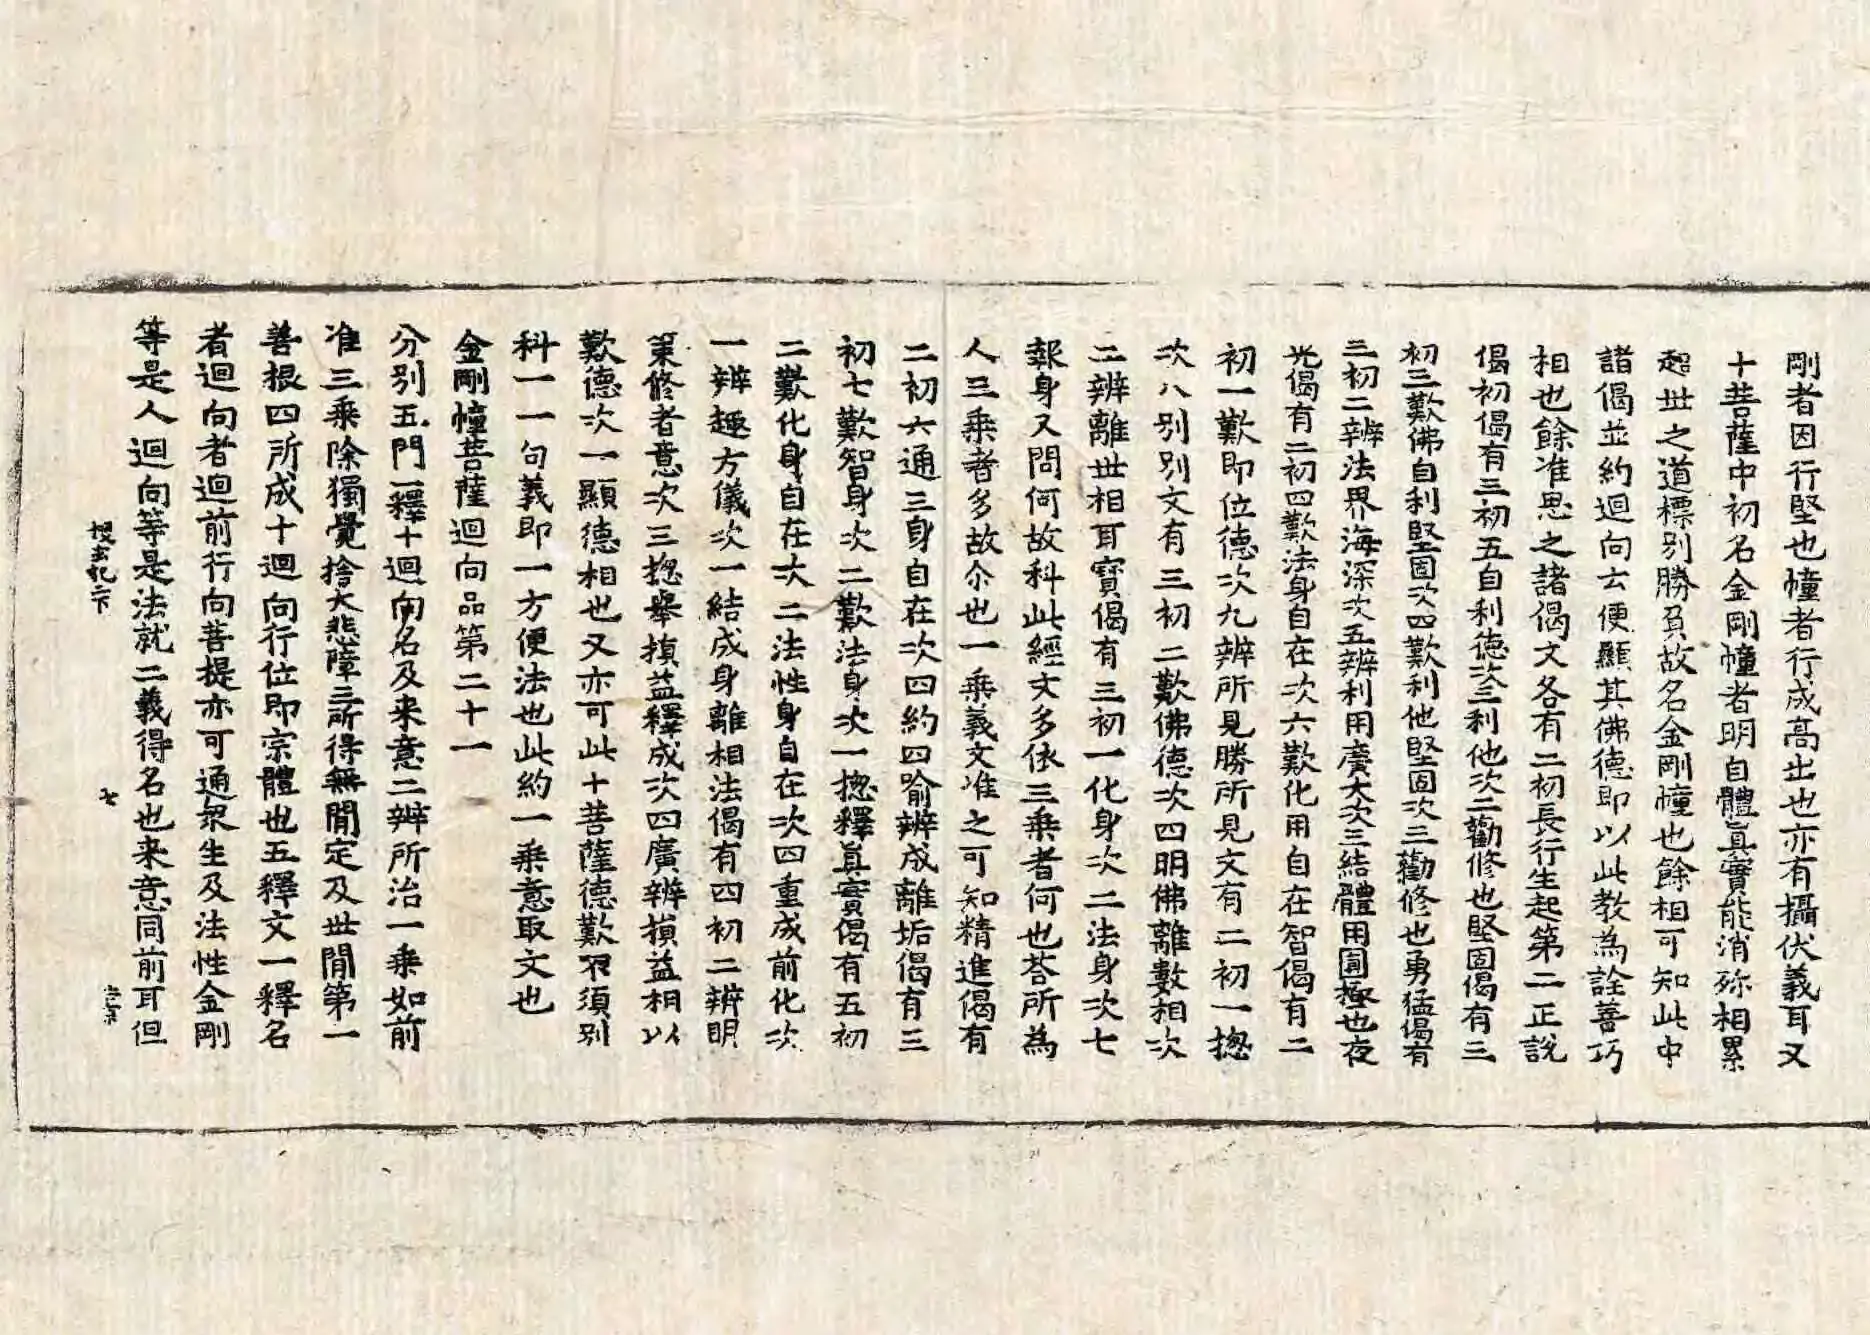 剛者因行堅也幢者行成高出也亦有攝伏義耳又
十菩薩中初名金剛幢者明自體眞實能消殄相累
超世之道標別勝負故名金剛幢也餘相可知此中
諸偈並約迴向云便顯其佛德即以此教為詮善巧
相也餘准思之諸偈文各有二初長行生起第二正說
偈初偈有三初五自利德次三利他次二勸修也堅固偈有三
初三歎佛自利堅固次四歎利他堅固次三勸修也勇猛偈有
三初二辨法界海深次五辨利用廣大次三結體用圓極也夜
光偈有二初四歎法身自在次六歎化用自在智偈有二
初一歎即位德次九辨所見勝所見文有二初一揔
次八別別文有三初二歎佛德次四明佛離數相次
二辨離世相耳寶偈有三初一化身次二法身次七
報身又問何故科此經文多依三乘者何也荅所為
人三乘者多故尒也一乘義文准之可知精進偈有
二初六通三身自在次四約四喻辨成離垢偈有三
初七歎智身次二歎法身次一揔釋眞實偈有五初
二歎化身自在次二法性身自在次四重成前化次
一辨趣方儀次一結成身離相法偈有四初二辨明
策修者意次三揔舉損益釋成次四廣辨損益相以
歎德次一顯德相也又亦可此十菩薩德歎不須別
科一一句義即一方便法也此約一乘意取文也
金剛幢菩薩迴向品第二十一
分別五門一釋十迴向名及来意二辨所治一乘如前
准三乘除獨覺捨大悲障三所得無間定及世間第一
善根四所成十迴向行位即宗體也五釋文一釋名
者迴向者迴前行向菩提亦可通衆生及法性金剛
等是人迴向等是法就二義得名也来意同前耳但
搜玄記三下 七